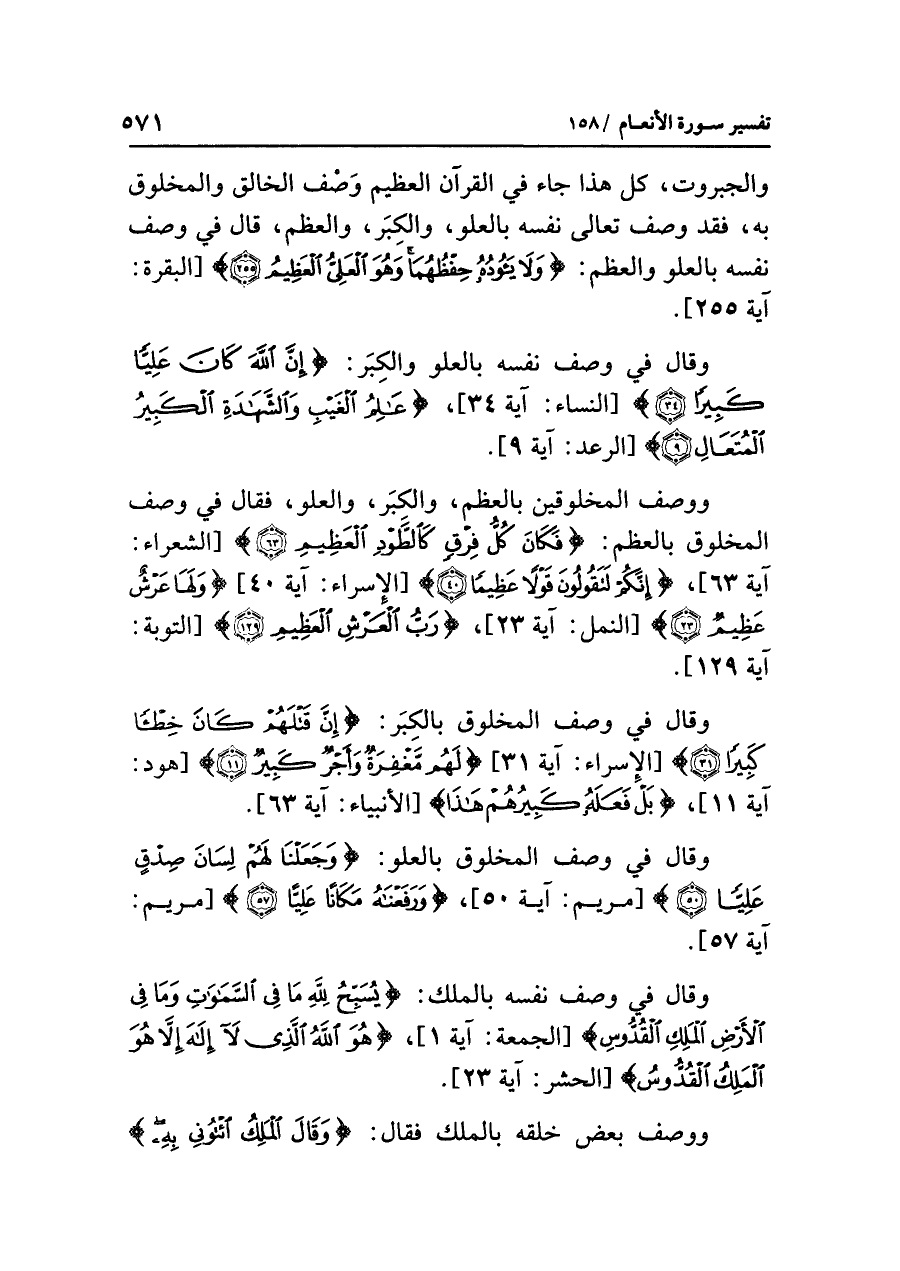 تفسير سورة الأنعام / ١٥٨ ٥٧١
والجبروت، كل هذا جاء في القرآن العظيم وَصْف الخالق والمخلوق
به، فقد وصف تعالى نفسه بالعلو، والكِبَر، والعظم، قال في وصف
نفسه بالعلو والعظم: ﴿ وَلَا يَـُٔودُهُۥ حِفْظُهُمَاۚ وَهُوَ ٱلْعَلِىُّ ٱلْعَظِيمُ ۝٢٥٥﴾ [البقرة:
آية ٢٥٥].
وقال في وصف نفسه بالعلو والكِبَر: ﴿ إِنَّ ٱللَّهَ كَانَ عَلِيًّا
كَبِيرًا ۝٣٤ ﴾ [النساء: آية ٣٤]، ﴿ عَـٰلِمُ ٱلْغَيْبِ وَٱلشَّهَـٰدَةِ ٱلْكَبِيرُ
ٱلْمُتَعَالِ ۝٩﴾ [الرعد: آية ٩].
ووصف المخلوقين بالعظم، والكِبَر، والعلو، فقال في وصف
المخلوق بالعظم: ﴿ فَكَانَ كُلُّ فِرْقٍ كَٱلطَّوْدِ ٱلْعَظِيمِ ۝٦٣ ﴾ [الشعراء:
آية ٦٣]، ﴿ إِنَّكُمْ لَتَقُولُونَ قَوْلًا عَظِيمًا ۝٤٠﴾ [الإسراء: آية ٤٠] ﴿ وَلَهَا عَرْشٌ
عَظِيمٌ ۝٢٣ ﴾ [النمل: آية ٢٣]، ﴿ رَبُّ ٱلْعَرْشِ ٱلْعَظِيمِ ۝١٢٩ ﴾ [التوبة:
آية ١٢٩].
وقال في وصف المخلوق بالكِبَر: ﴿ إِنَّ قَتْلَهُمْ كَانَ خِطْـًٔا
كَبِيرًا ۝٣١﴾ [الإسراء: آية ٣١] ﴿ لَهُم مَّغْفِرَةٌ وَأَجْرٌ كَبِيرٌ ۝١١ ﴾ [هود:
آية ١١]، ﴿ بَلْ فَعَلَهُۥ كَبِيرُهُمْ هَـٰذَا﴾ [الأنبياء: آية ٦٣].
وقال في وصف المخلوق بالعلو: ﴿ وَجَعَلْنَا لَهُمْ لِسَانَ صِدْقٍ
عَلِيًّا ۝٥٠ ﴾ [مريم: آية ٥٠]، ﴿ وَرَفَعْنَـٰهُ مَكَانًا عَلِيًّا ۝٥٧ ﴾ [مريم:
آية ٥٧].
وقال في وصف نفسه بالملك: ﴿ يُسَبِّحُ لِلَّهِ مَا فِى ٱلسَّمَـٰوَٰتِ وَمَا فِى
ٱلْأَرْضِ ٱلْمَلِكِ ٱلْقُدُّوسِ﴾ [الجمعة: آية ١]، ﴿ هُوَ ٱللَّهُ ٱلَّذِى لَآ إِلَـٰهَ إِلَّا هُوَ
ٱلْمَلِكُ ٱلْقُدُّوسُ﴾ [الحشر: آية ٢٣].
ووصف بعض خلقه بالملك فقال: ﴿ وَقَالَ ٱلْمَلِكُ ٱئْتُونِى بِهِۦۖ ﴾